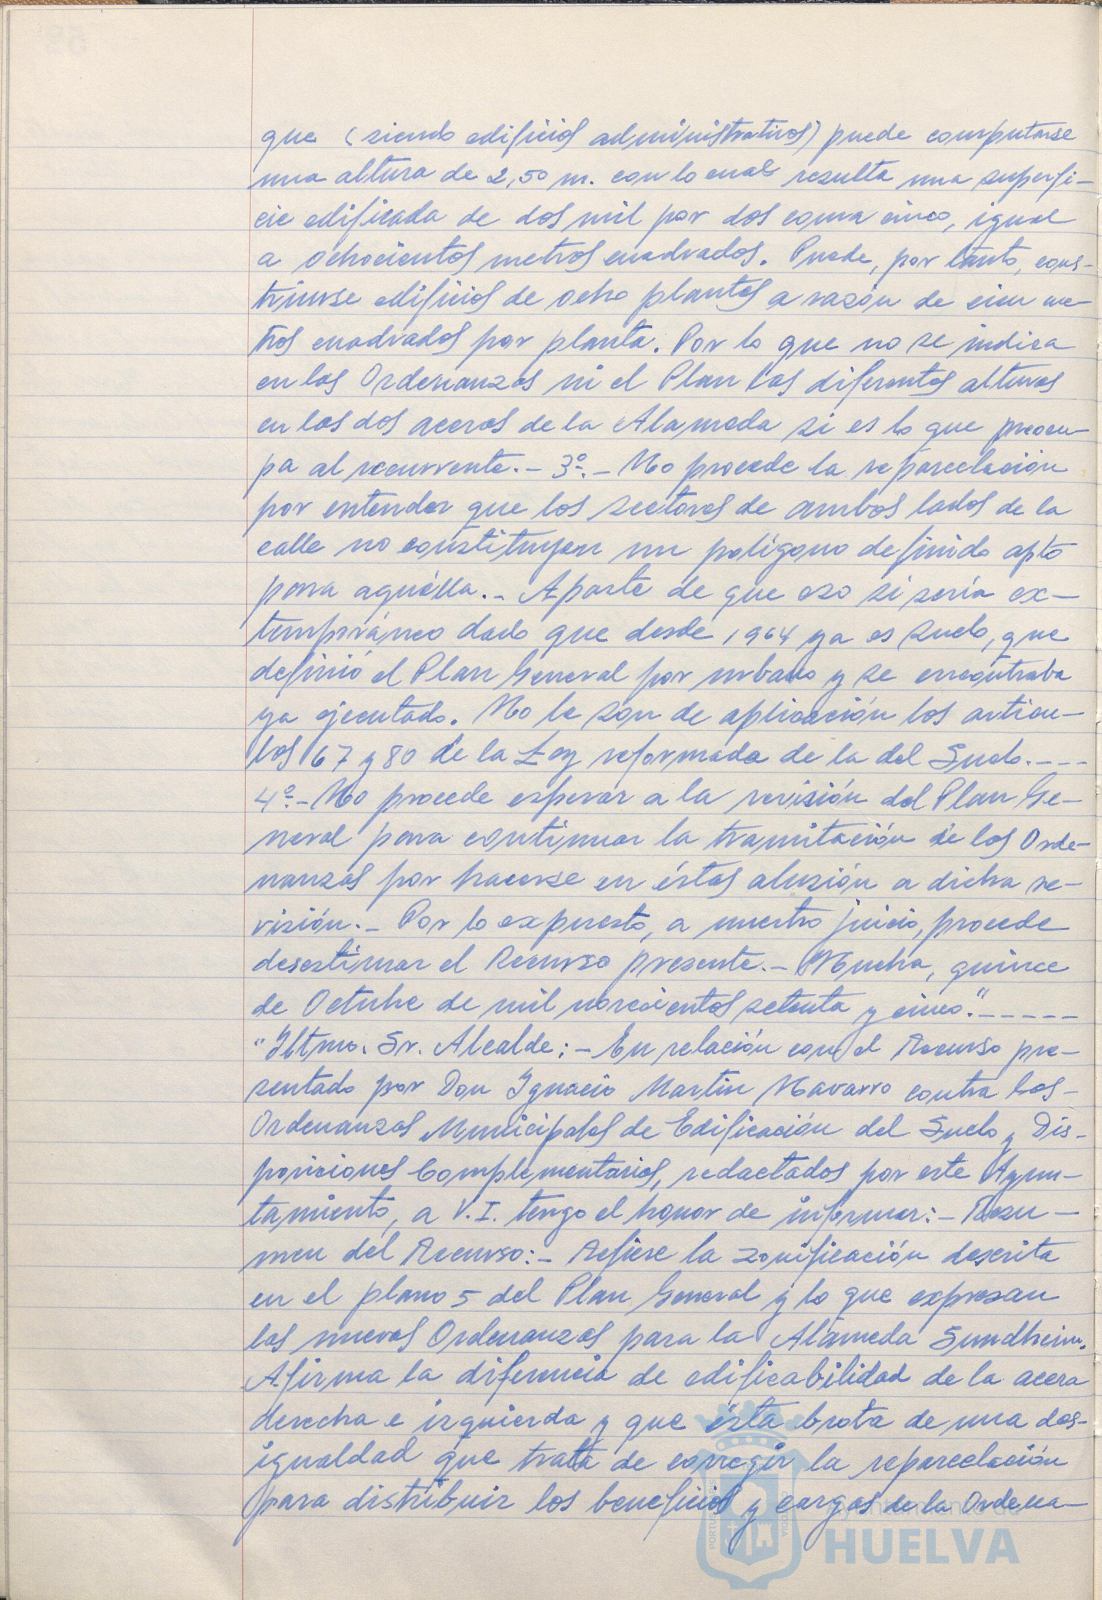 que (siendo edificios administrativos) puede computarse
una altura de 2,50 m. con lo cual resulta una superfi-
cie edificada de dos mil por dos coma cinco, igual
a ochocientos metros cuadrados. Puede, por tanto, cons-
truirse edificios de ocho plantas a razón de cien me-
tros cuadrados por planta. Por lo que no se indica
en las Ordenanzas ni el Plan las diferentes alturas
en las dos aceras de la Alameda si es lo que preocu-
pa al recurrente.- 3º.- No procede la reparcelación
por entender que los sectores de ambos lados de la
calle no constituyen un polígono definido apto
para aquélla.- Aparte de que eso si sería ex-
temporáneo dado que desde 1964 ya es suelo, que
definió el Plan General por urbano y se encontraba
ya ejecutado. No le son de aplicación los artícu-
los 67 y 80 de la Ley reformada de la del Suelo.---
4º.- No procede esperar a la revisión del Plan Ge-
neral para continuar la tramitación de las Orde-
nanzas por hacerse en éstas alusión a dicha re-
visión.- Por lo expuesto, a nuestro juicio, procede
desestimar el Recurso presente.- Huelva, quince
de Octubre de mil novecientos setenta y cinco."-----
"Iltmo. Sr. Alcalde:- En relación con el Recurso pre-
sentado por Don Ignacio Martín Navarro contra las-
Ordenanzas Municipales de Edificación del Suelo y Dis-
posiciones Complementarias, redactadas por este Ayun-
tamiento, a V.I. tengo el honor de informar:- Resu-
men del Recurso:- Refiere la zonificación descrita
en el plano 5 del Plan General y lo que expresan
las nuevas Ordenanzas para la Alameda Sundheim.
Afirma la diferencia de edificabilidad de la acera
derecha e izquierda y que ésta brota de una des-
igualdad que trata de corregir la reparcelación
para distribuir los beneficios y cargas de la Ordena-
Ayuntamiento de
HUELVA